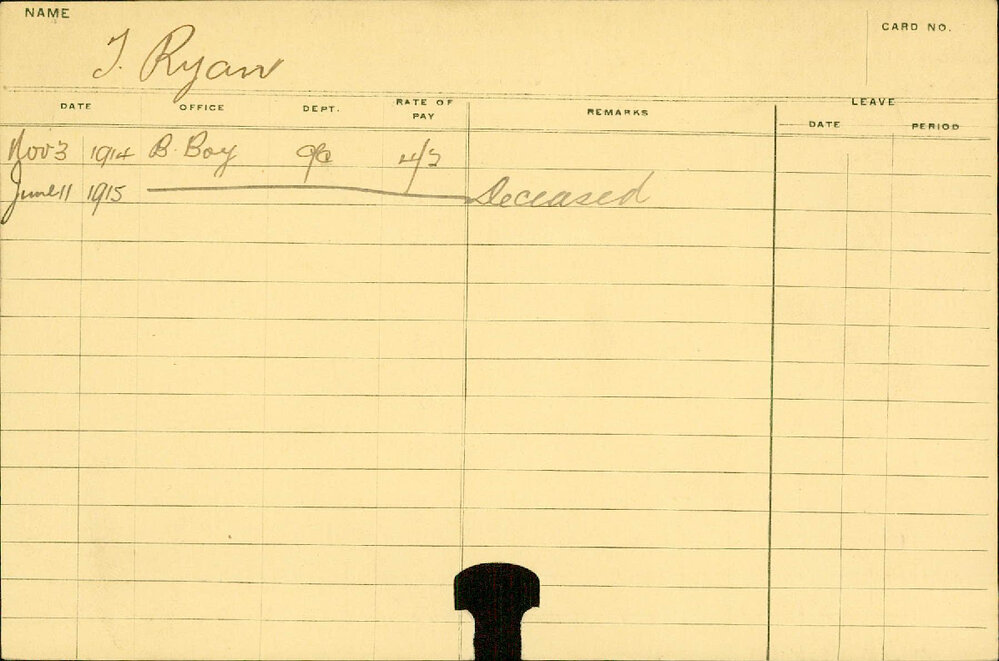 NAME
CARD NO.
T. Ryan
DATE OFFICE DEPT. RATE OF PAY REMARKS LEAVE
DATE PERIOD
Nov 3 1914 B. Boy
June 11 1915 Deceased